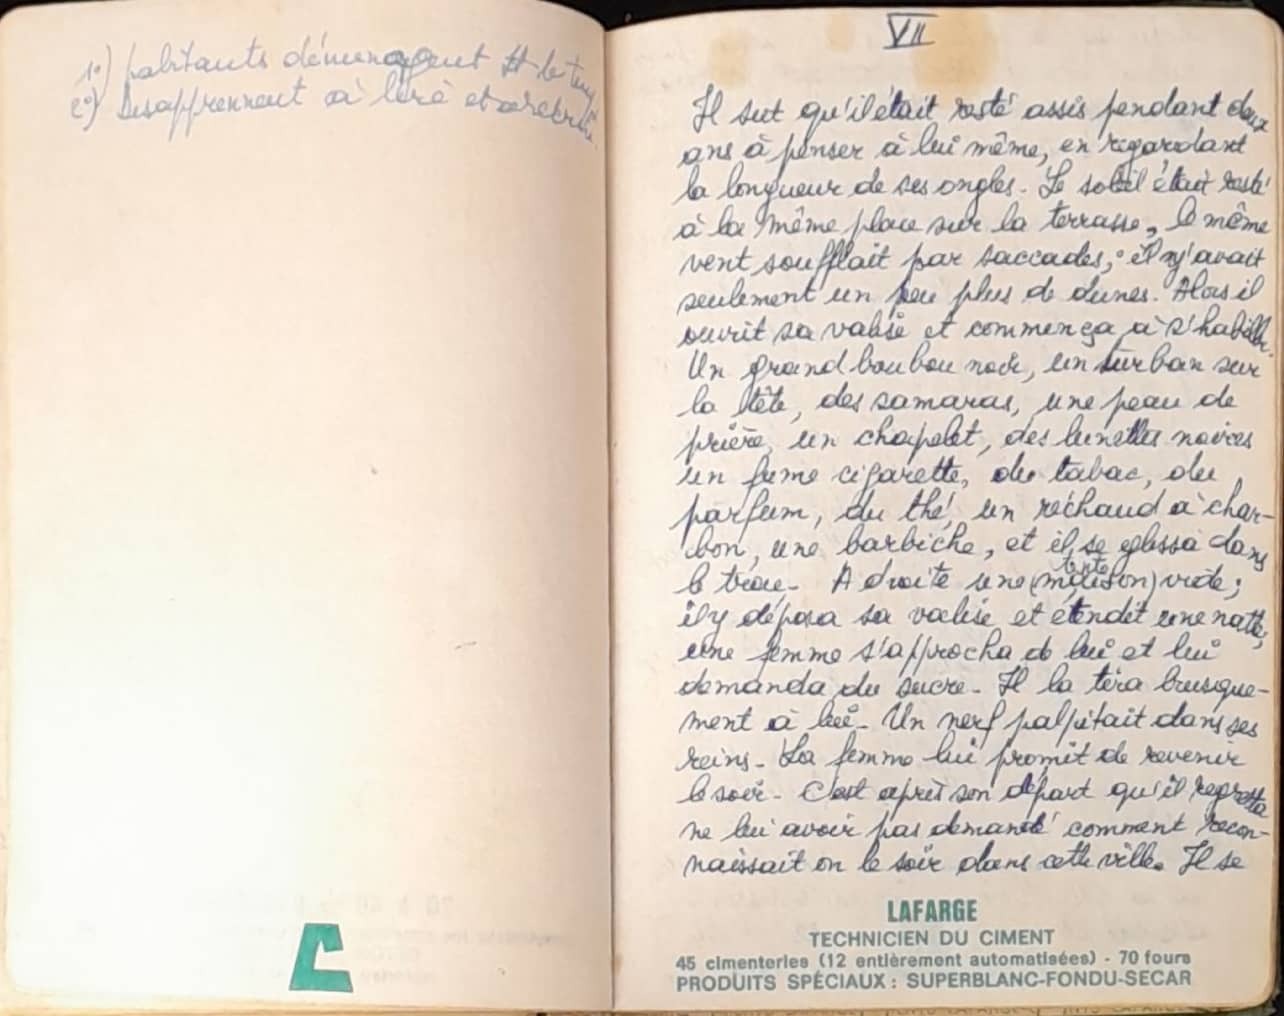 1°) habitants déménagent
2°) Désapprennent à lire et
VII
Il sut qu'il était resté assis pendant deux
ans à penser à lui même, en regardant
la longueur de ses ongles. Le soleil était resté
à la même place sur la terrasse, le même
vent soufflait par saccades, il n'y avait
seulement un peu plus de dunes. Alors il
ouvrit sa valise et commença à s'habiller.
Un grand boubou noir, un turban sur
la tête, des samaras, une peau de
prière, un chapelet, des lunettes noires
un fume cigarette, du tabac, du
parfum, du thé, un réchaud à char-
bon, une barbiche, et il se glissa dans
le trou. A droite une (maison) tente vide;
il y déposa sa valise et étendit une natte,
une femme s'approcha de lui et lui
demanda du sucre. Il la tira brusque-
ment à lui. Un nerf palpitait dans ses
reins. La femme lui promit de revenir
le soir. C'est après son départ qu'il regretta
ne lui avoir pas demandé comment recon-
naissait on le soir dans cette ville. Il se
LAFARGE
TECHNICIEN DU CIMENT
45 cimenteries (12 entièrement automatisées) - 70 fours
PRODUITS SPÉCIAUX : SUPERBLANC-FONDU-SECAR